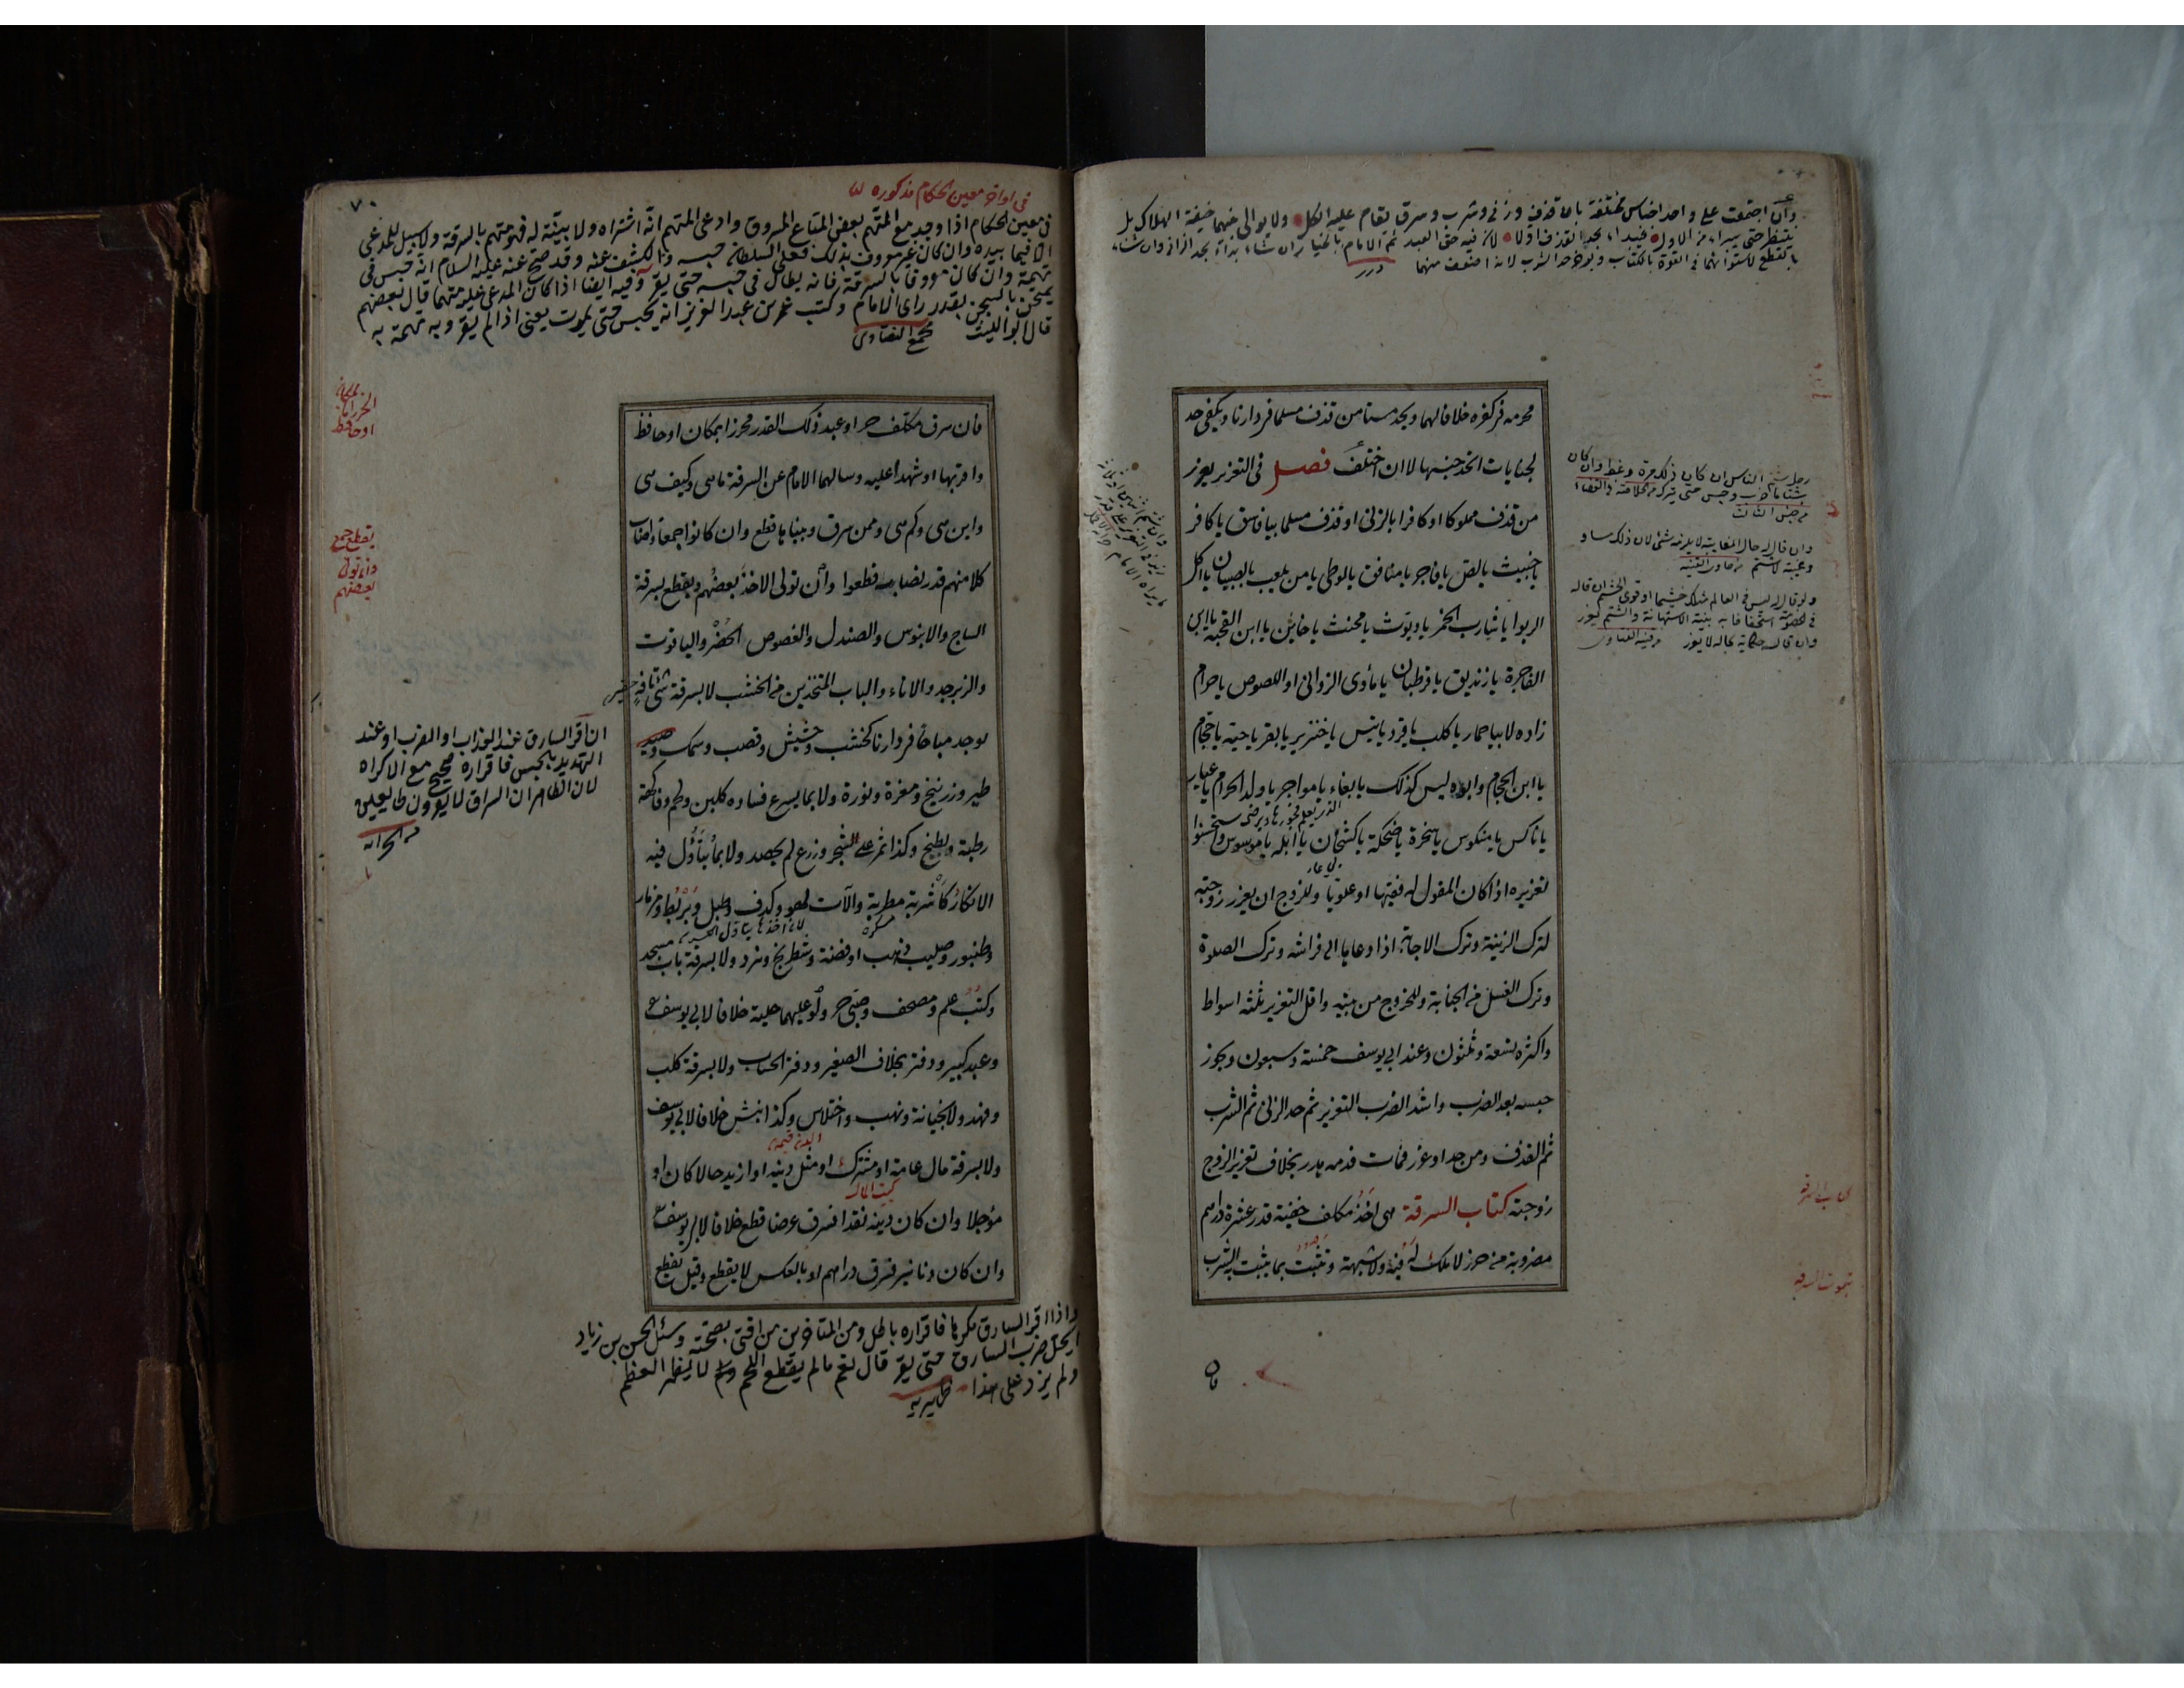 وان اجتمعت على واحد اجناس مختلفة بان قذف وزنى وشرب وسرق يقام عليه الكل ولا يوالى بينهما خيفة الهلاك بل
ينتظر حتى يبراء من الاول فيبداء بحد القذف اولا لان فيه حق العبد ثم الامام بالخيار ان شاء بداء بحد الزنا وان شاء
بالقطع لاستوائهما فى القوة بالكتاب ويؤخر حد الشرب لانه اضعف منهما
درر
محرمه فى كفره خلافا لهما ويحد مستامن قذف مسلما فى دارنا ويكفى حد
لجنايات اتحد جنسها لا ان اختلف فصل فى التعزير يعزر
من قذف مملوكا او كافرا بالزنى او قذف مسلما بيا فاسق يا كافر
يا خبيث يا لص يا فاجر يا منافق يا لوطى يا من يلعب بالصبيان يا اكل
الربوا يا شارب الخمر يا ديوث يا مخنث يا خائن يا ابن القحبة يا ابن
الفاجرة يا زنديق يا قرطبان يا مأوى الزوانى او اللصوص يا حرام
زاده لا بيا حمار يا كلب يا قرد يا تيس يا خنزير يا بقر يا حية يا حجام
يا ابن الحجام وابوه ليس كذلك يا بغاء يا مواجر يا ولد الحرام يا عيار
يا ناكس يا منكوس يا سخرة يا ضحكة يا كشخان يا ابله يا موسوس واستحسنوا
تعزيره اذا كان المقول له فقيها او علويا وللزوج ان يعزر زوجته
لترك الزينة وترك الاجابة اذا دعاها الى فراشه وترك الصلوة
وترك الغسل من الجنابة وللخروج من بيته واقل التعزير ثلثة اسواط
واكثره تسعة وثلثون وعند ابى يوسف خمسة وسبعون ويجوز
حبسه بعد الضرب واشد الضرب التعزير ثم حد الزنى ثم الشرب
ثم القذف ومن حد او عزر فمات فدمه هدر بخلاف تعزير الزوج
زوجته كتاب السرقة هى اخذ مكلف خفية قدر عشرة دراهم
مضروبة من حرز لا ملك له فيه ولا شبهة وتثبت بما يثبت به الشرب
رجل يشتم الناس ان كان ذلك مرة وعظ وان كان
شتاما ضرب وحبس حتى يتركه من خلاصة فى القضاء
من جنس الثالث
كتاب السرقة
ثبوت السرقة
فان
٧٠
فى اواخر معين الحكام مذكوره
فى معين الحكام اذا وجد مع المتهم بعض المتاع المسروق وادعى المتهم انه اشتراه ولا بينة له فهو متهم بالسرقة ولا سبيل للمدعى
الا فيما بيده وان كان غير معروف بذلك فعلى السلطان حبسه والكشف عنه وقد صح عنه عليه السلام انه حبس فى
تهمة وان كان معروفا بالسرقة فانه يطال فى حبسه حتى يقر وفيه ايضا اذا كان المدعى عليه متهما قال بعضهم
يمتحن بالسجن بقدر راى الامام وكتب عمر بن عبد العزيز انه يحبس حتى يموت يعنى اذا لم يقر وبه
قال ابو الليث
مجمع الفتاوى
فان سرق مكلف حر او عبد ذلك القدر محرزا بمكان او حافظ
واقر بها او شهدا عليه وسالهما الامام عن السرقة ما هى وكيف هى
واين هى وكم هى وممن سرق وبيناها قطع وان كانوا جمعا واصاب
كلا منهم قدر نصاب قطعوا وان تولى الاخذ بعضهم ويقطع بسرقة
الساج والابنوس والصندل والفصوص الخضر والياقوت
والزبرجد والاناء والباب المتخذين من الخشب لا بسرقة شئ تافه
يوجد مباحا فى دارنا كخشب وحشيش وقصب وسمك وصيد
طير وزرنيخ ومغرة ونورة ولا بما يسرع فساده كلبن ولحم وفاكهة
رطبة وبطيخ وكذا ثمر على الشجر وزرع لم يحصد ولا بما يتأول فيه
الانكار كاشربة مطربة والآت لهو كدف وطبل وبربط ومزمار
وطنبور وصليب ذهب او فضة وشطرنج ونرد ولا بسرقة باب مسجد
وكتب علم ومصحف وصبى حر ولو عليهما حلية خلافا لابى يوسف
وعبد كبير ودفتر بخلاف الصغير ودفتر الحساب ولا بسرقة كلب
وفهد ولا بخيانة ونهب واختلاس وكذا نبش خلافا لابى يوسف
ولا بسرقة مال عامة او مشترك او مثل دينه او ازيد حالا كان او
مؤجلا وان كان دينه نقدا فسرق عرضا قطع خلافا لابى يوسف
وان كان دنانير فسرق دراهم او بالعكس لا يقطع وقيل يقطع
بمكان
الحرز
او حافظ
يقطع جمع
وان تولى
بعضهم
ان اقر السارق عند العذاب او الضرب او عند
التهديد بالحبس فاقراره صحيح مع الاكراه
لان الظاهر ان السراق لا يقرون طايعين
من الخزانه
واذا اقر السارق مكرها فاقراره باطل ومن المتاخرين من افتى بصحته وسئل الحسن بن زياد
ايحل ضرب السارق حتى يقر قال نعم ما لم يقطع اللحم لا يظهر العظم
ولم يزد على هذا ظهيريه